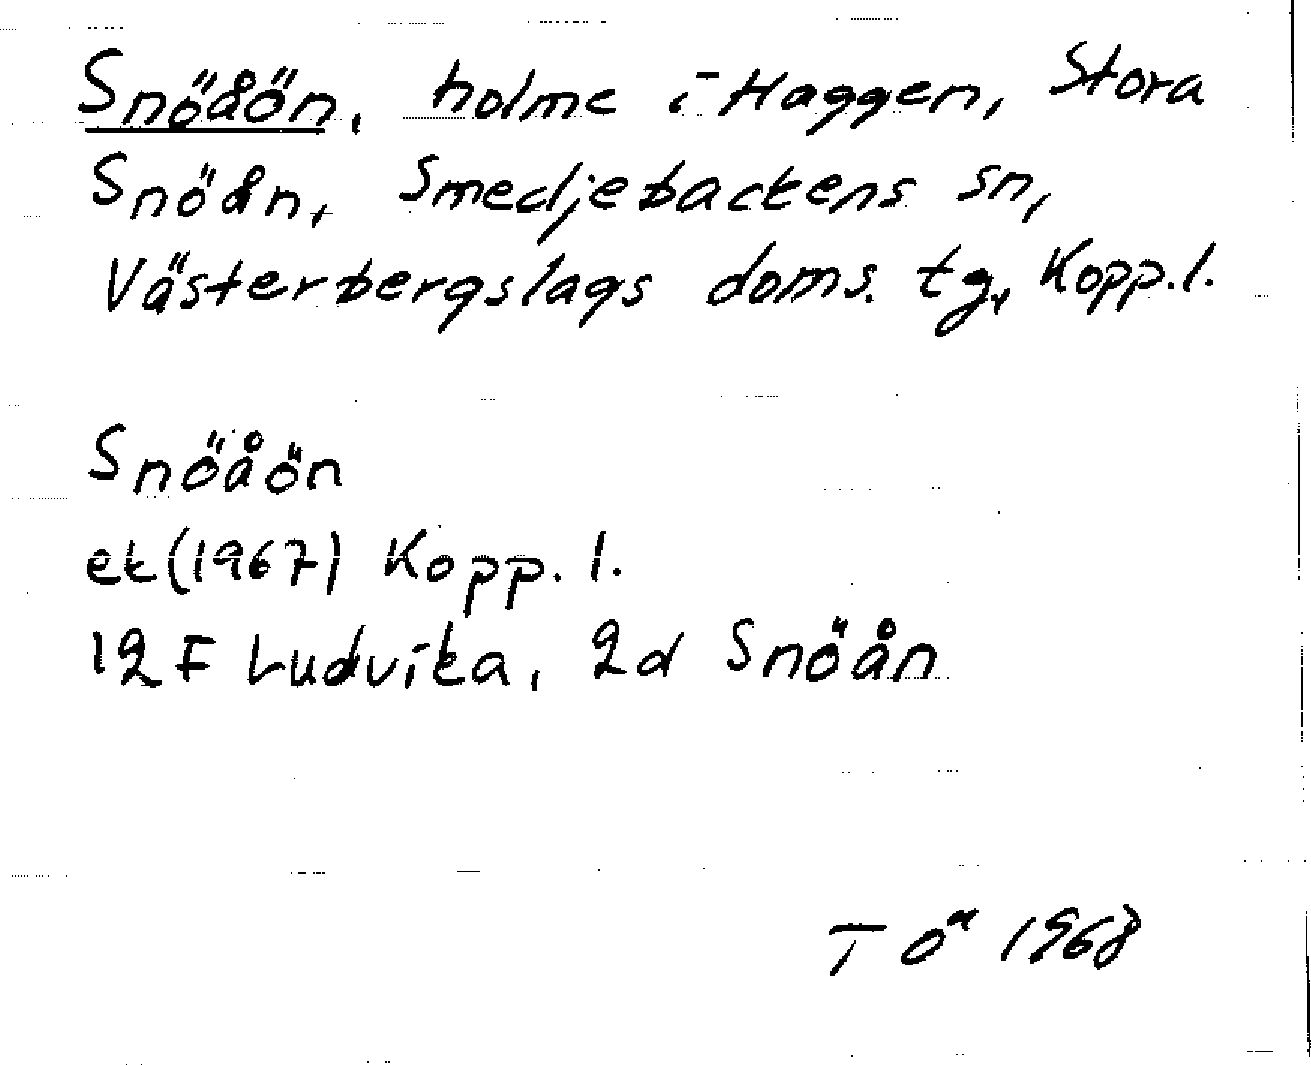 Snöåön, holme i Haggen, Stora
Snöån, Smedjebackens sn,
Västerbergslags doms. tg, Kopp.l.
Snöåön
ek (1967) Kopp. l.
12 F Ludvika, 2d Snöån
T Ö 1968